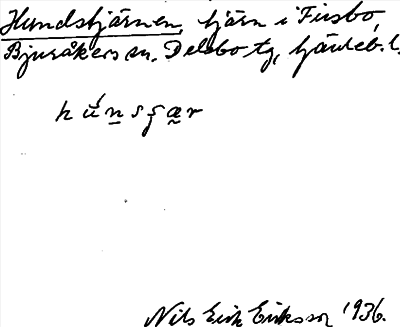 Hundstjärnen, tjärn i Fiısbo,
Bjuråkers sn. Delsbo tg, Gävleb. l.
hún̠sʂæ̰r
Nils Erik Eriksson 1936.